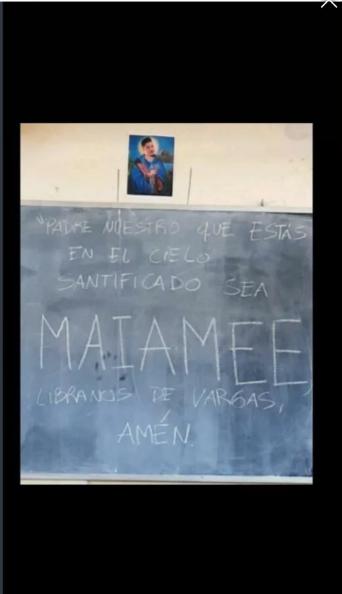 "PADRE NUESTRO QUE ESTÁS
EN EL CIELO
SANTIFICADO SEA
MAIAMEE
LIBRANOS DE VARGAS,
AMÉN.